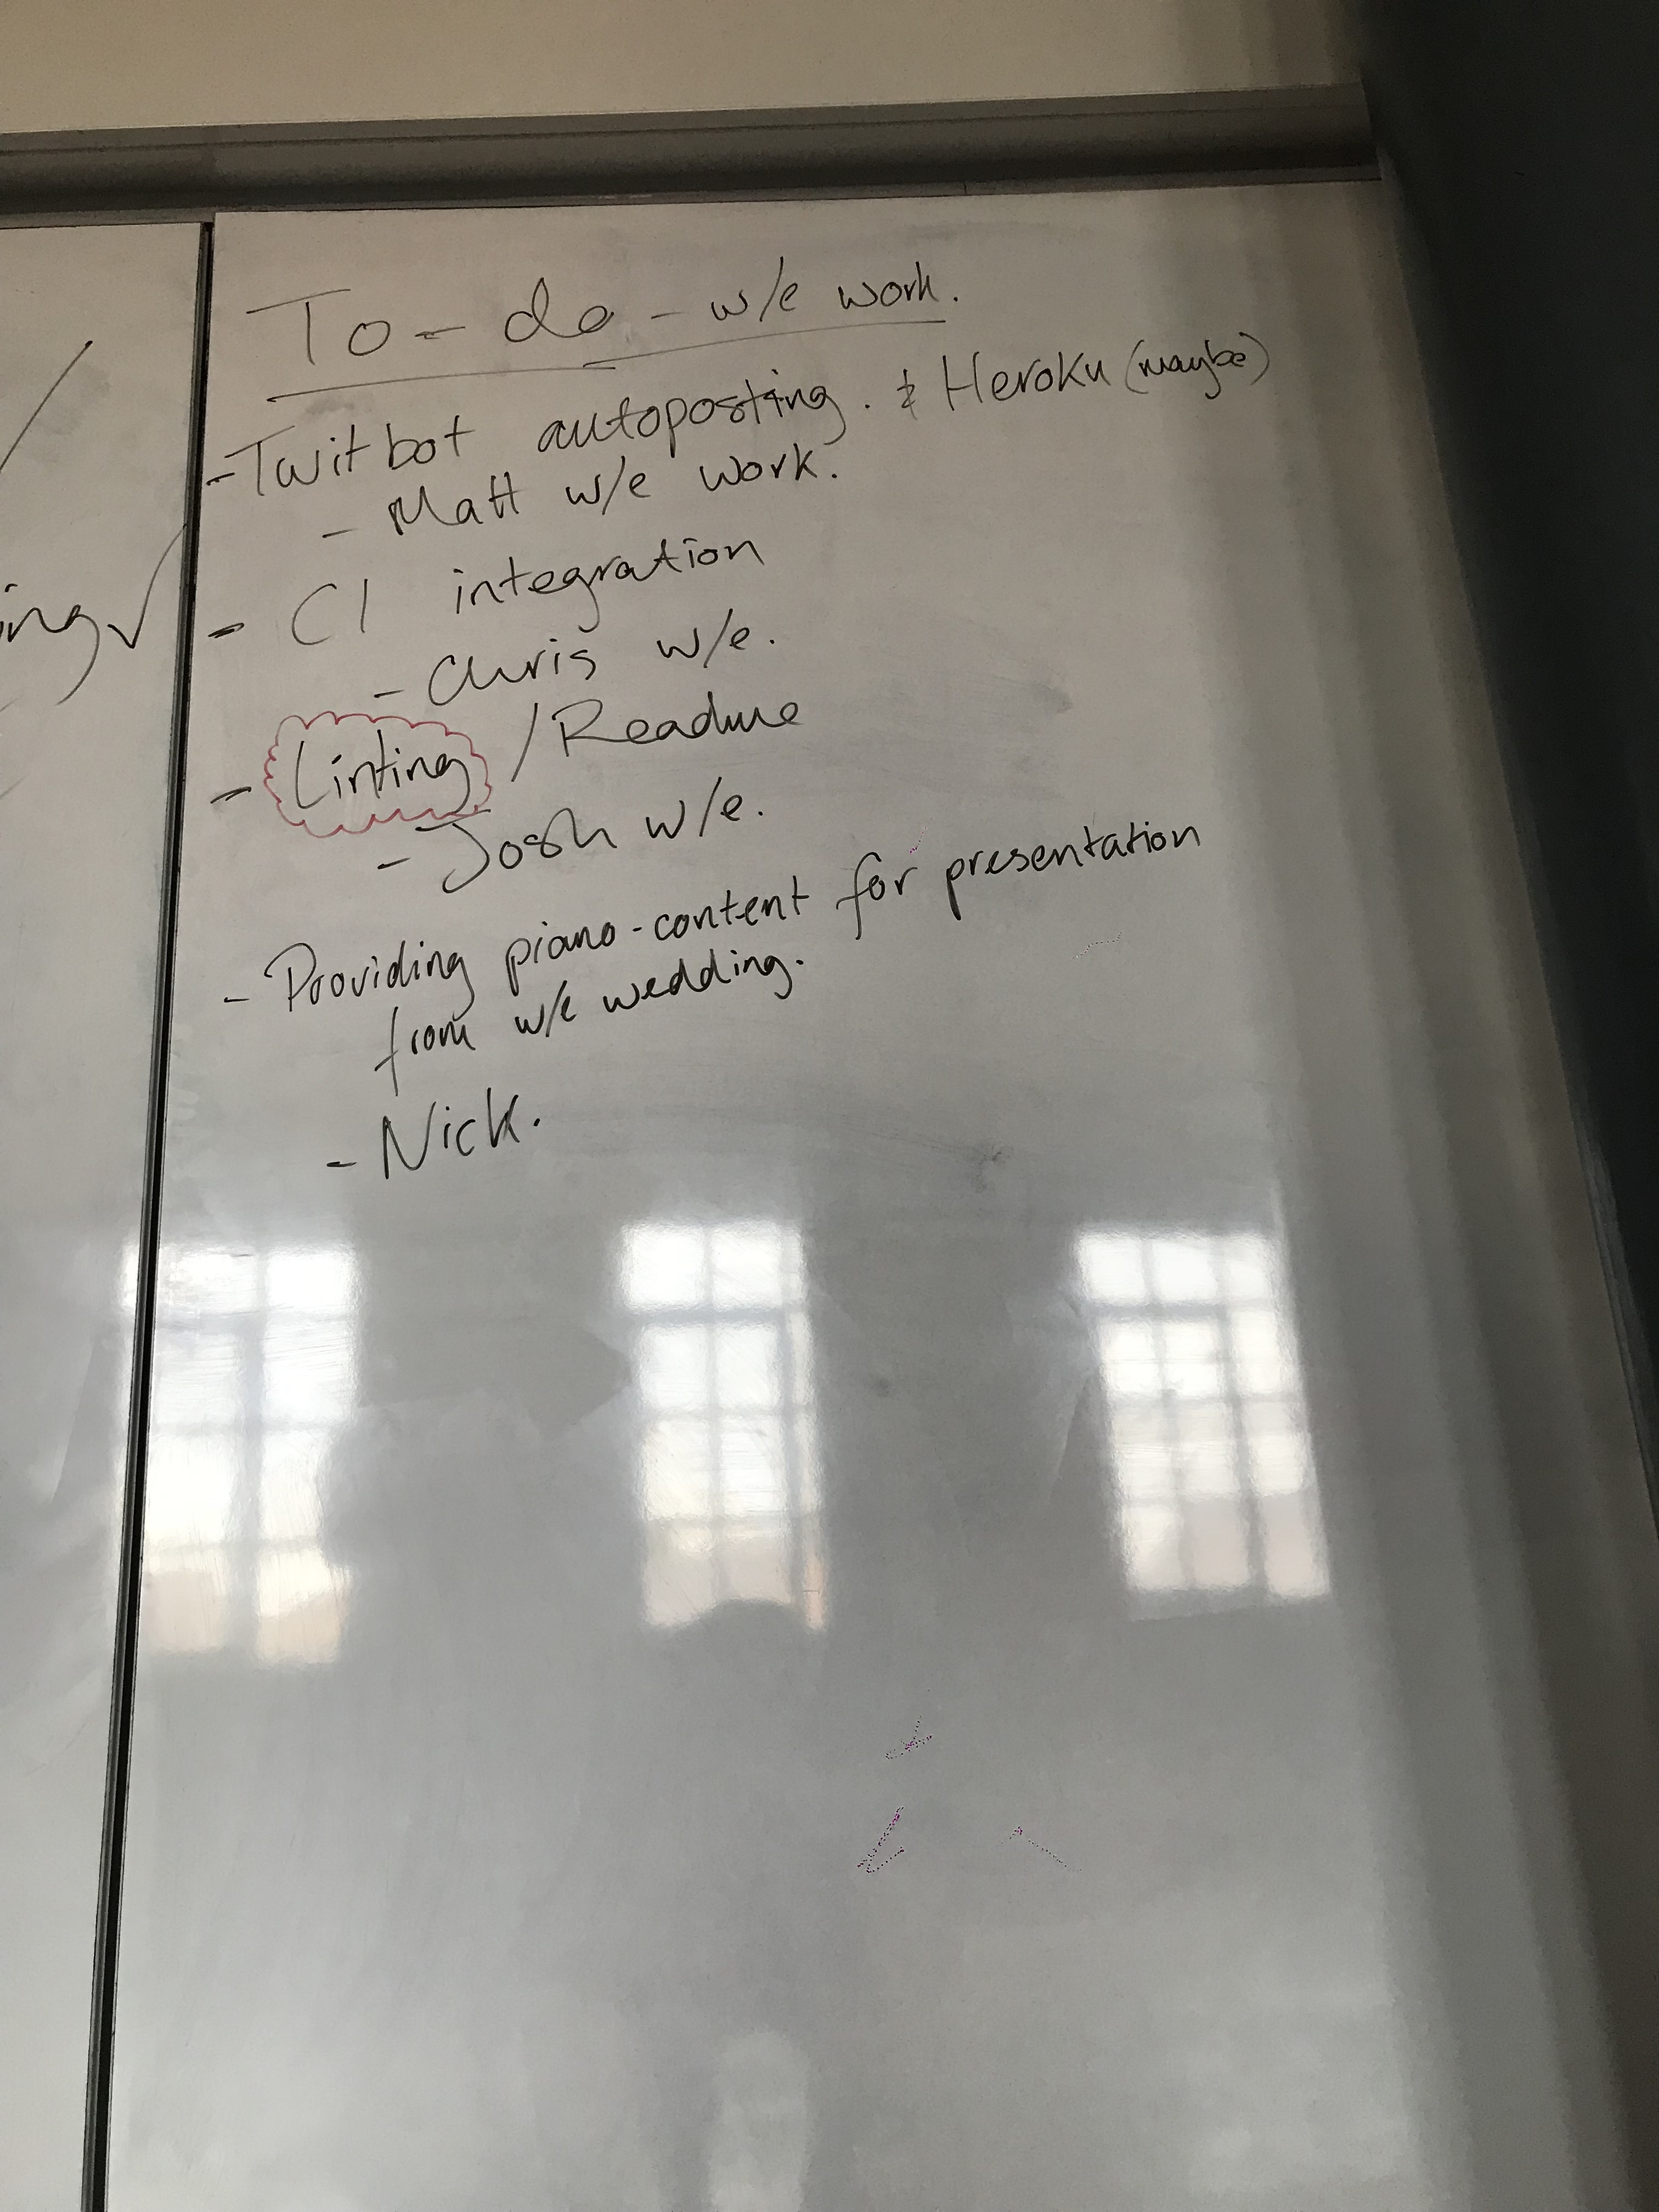 To-do - w/e work.
- Twitbot autoposting. & Heroku (maybe)
- Matt w/e work.
- CI integration
- Chris w/e.
- Linting / Readme
- Josh w/e.
- Providing piano-content for presentation
from w/e wedding.
- Nick.